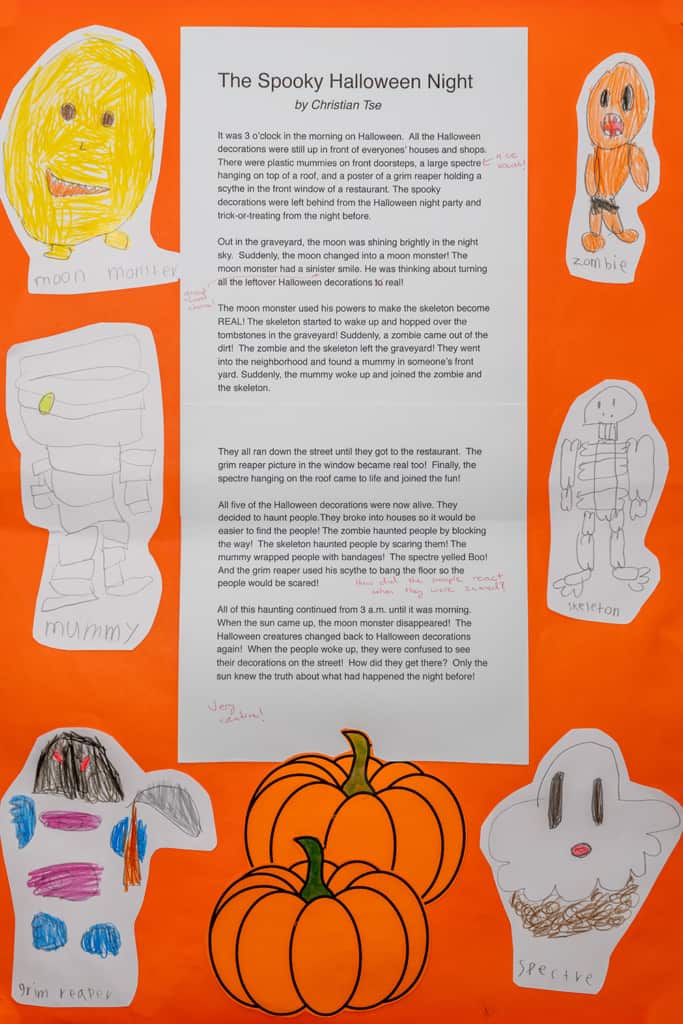 The Spooky Halloween Night
by Christian Tse
It was 3 o'clock in the morning on Halloween. All the Halloween
decorations were still up in front of everyones' houses and shops.
There were plastic mummies on front doorsteps, a large spectre
hanging on top of a roof, and a poster of a grim reaper holding a
scythe in the front window of a restaurant. The spooky
decorations were left behind from the Halloween night party and
trick-or-treating from the night before.
Out in the graveyard, the moon was shining brightly in the night
sky. Suddenly, the moon changed into a moon monster! The
moon monster had a sinister smile. He was thinking about turning
all the leftover Halloween decorations to real!
The moon monster used his powers to make the skeleton become
REAL! The skeleton started to wake up and hopped over the
tombstones in the graveyard! Suddenly, a zombie came out of the
dirt! The zombie and the skeleton left the graveyard! They went
into the neighborhood and found a mummy in someone's front
yard. Suddenly, the mummy woke up and joined the zombie and
the skeleton.
They all ran down the street until they got to the restaurant. The
grim reaper picture in the window became real too! Finally, the
spectre hanging on the roof came to life and joined the fun!
All five of the Halloween decorations were now alive. They
decided to haunt people.They broke into houses so it would be
easier to find the people! The zombie haunted people by blocking
the way! The skeleton haunted people by scaring them! The
mummy wrapped people with bandages! The spectre yelled Boo!
And the grim reaper used his scythe to bang the floor so the
people would be scared!
How did the people react
when they were scared?
All of this haunting continued from 3 a.m. until it was morning.
When the sun came up, the moon monster disappeared! The
Halloween creatures changed back to Halloween decorations
again! When the people woke up, they were confused to see
their decorations on the street! How did they get there? Only the
sun knew the truth about what had happened the night before!
Very
creative!
moon monster
zombie
mummy
skeleton
grim reaper
spectre